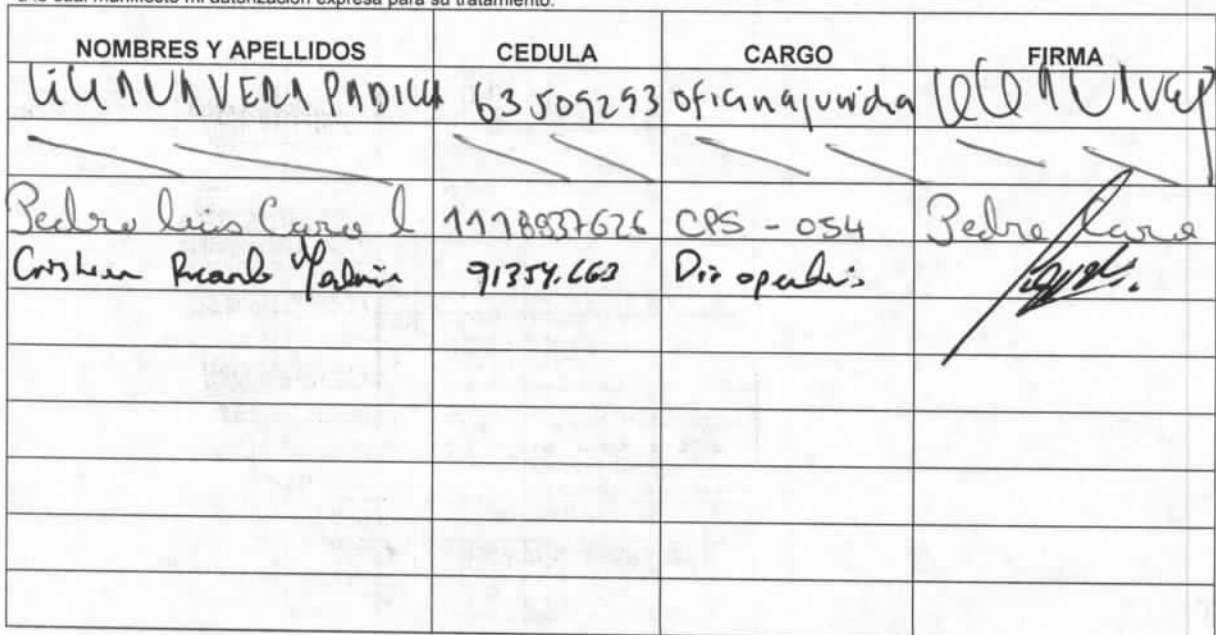 la cual manifiesto mi autorización expresa para su tratamiento.
NOMBRES Y APELLIDOS CEDULA CARGO FIRMA
LiLIANA VERA PADILLA 63509293 oficina juridica
Pedro luis Caro l 1118837626 CPS - 054 Pedro Caro
Ricardo 91354.663 Dir